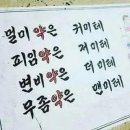 멀미약은 귀미테
피임약은 저미테
변비약은 더미테
무좀약은 맨미테